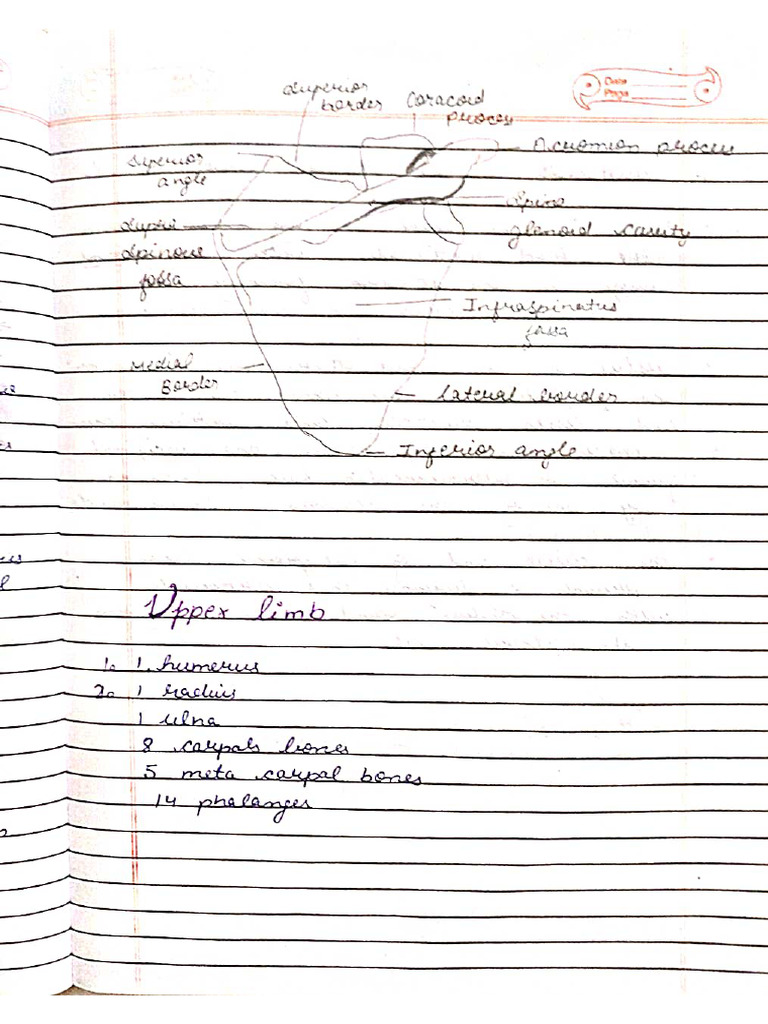 Date
Page
Superior
border
Coracoid
process
Acromion process
Superior
angle
Spine
Supra
Spinous
fossa
glenoid cavity
Infraspinatus
fossa
Medial
Border
lateral border
Inferior angle
Upper limb
1. 1. humerus
2. 1 radius
1 ulna
8 carpals bones
5 meta carpal bones
14 phalanges